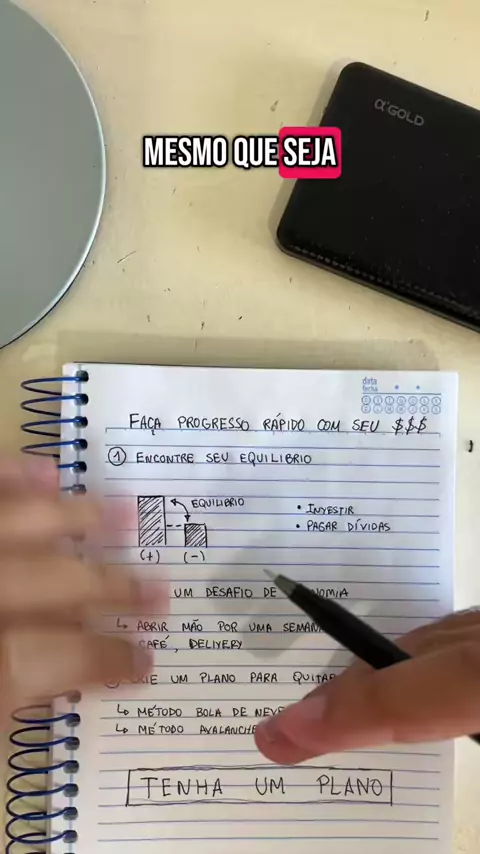 MESMO QUE SEJA
α'GOLD
data
fecha
FAÇA PROGRESSO RÁPIDO COM SEU $$$
① ENCONTRE SEU EQUILIBRIO
EQUILIBRIO
• INVESTIR
• PAGAR DÍVIDAS
(+) (-)
UM DESAFIO DE
↳ ABRIR MÃO POR UMA
CAFÉ, DELIVERY
UM PLANO PARA
↳ MÉTODO BOLA DE NEVE
↳ MÉTODO AVALANCHE
TENHA UM PLANO